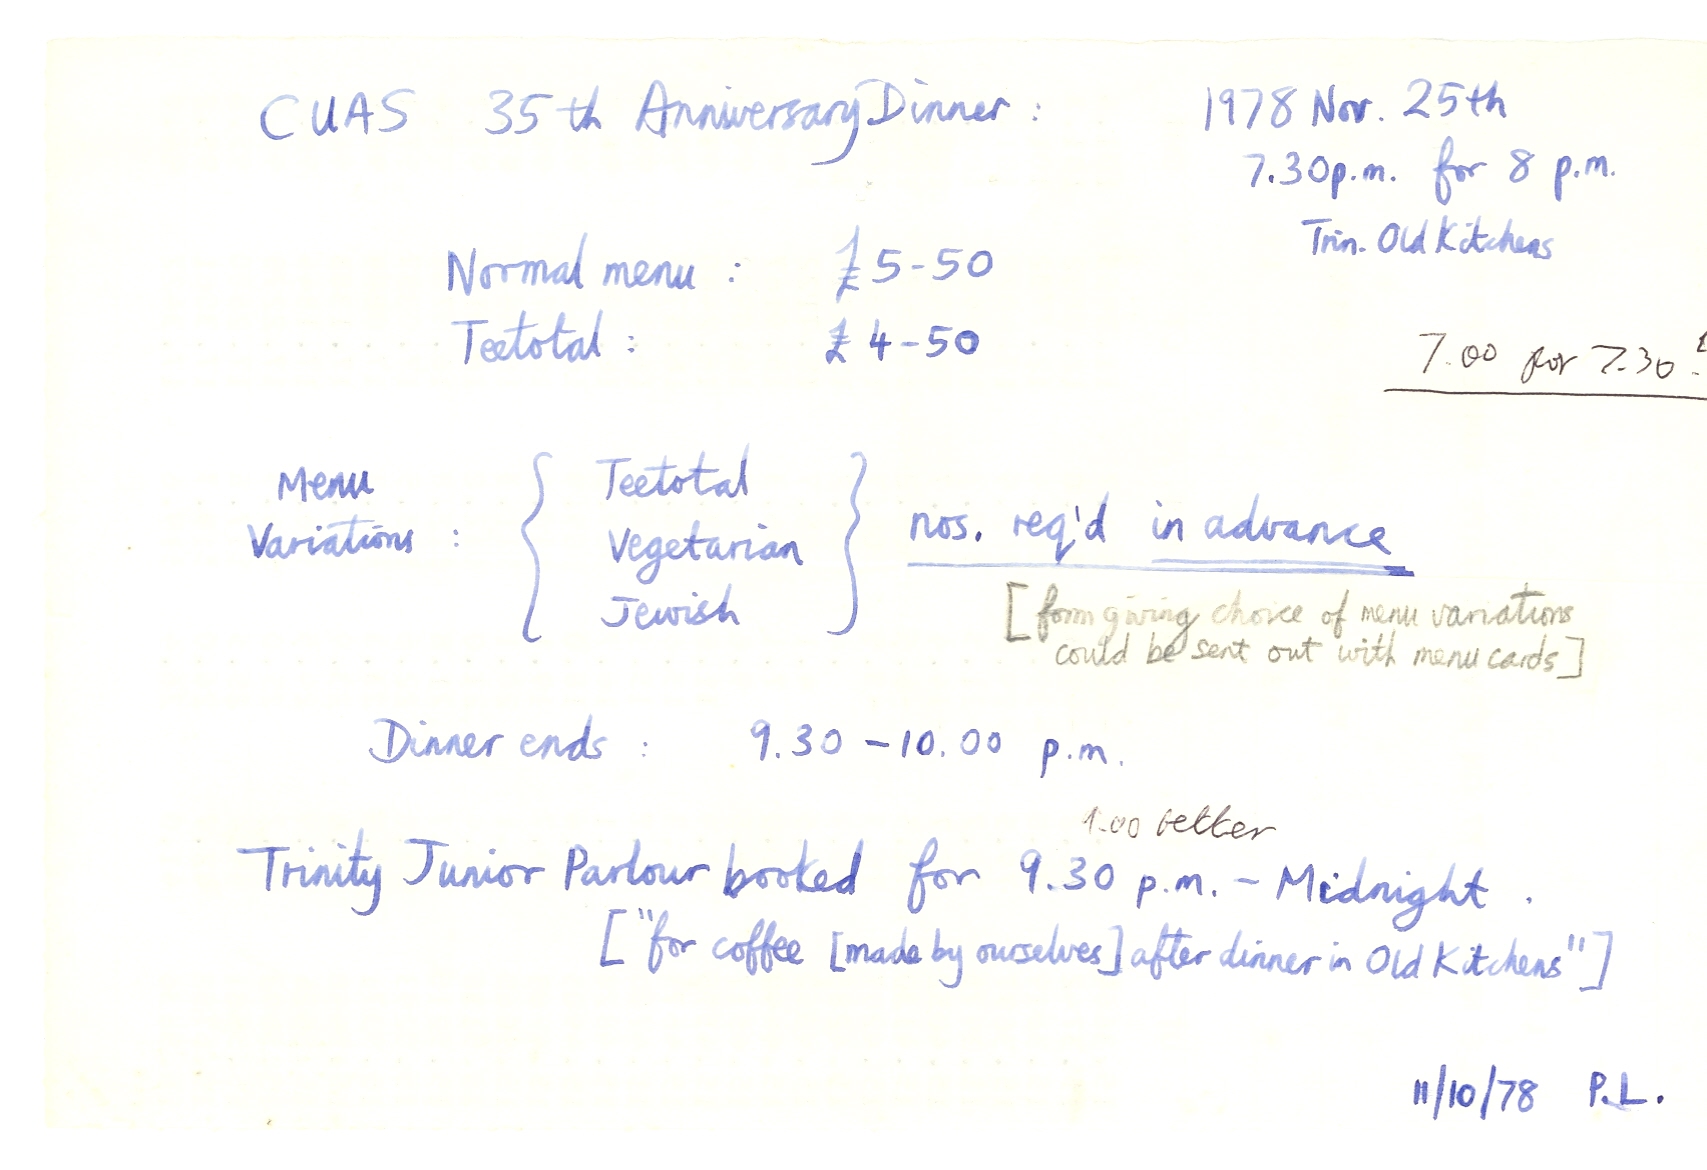 CUAS 35th Anniversary Dinner : 1978 Nov. 25th
7.30p.m. for 8 p.m.
Trin. Old Kitchens
Normal menu : £5-50
Teetotal : £4-50
7.00 for 7.30
Menu Variations : { Teetotal Vegetarian Jewish } nos. req'd in advance
[form giving choice of menu variations
could be sent out with menu cards]
Dinner ends : 9.30 - 10.00 p.m.
1.00 better
Trinity Junior Parlour booked for 9.30 p.m. - Midnight.
["for coffee [made by ourselves] after dinner in Old Kitchens"]
11/10/78 P.L.